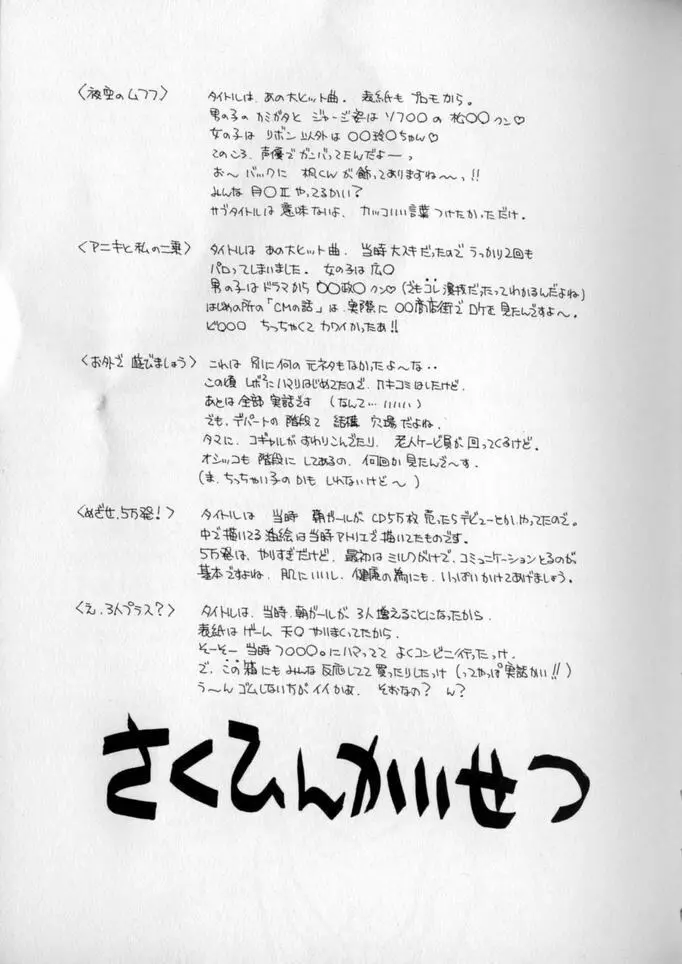 〈夜空のムフフ〉
タイトルは、あの大ヒット曲。表紙も プロモから。
男の子のカミガタと ジャージ姿は ソフ○○の 松○○クン♡
女の子は リボン以外は ○○玲○ちゃん♡
このころ、声優でガンバってたんだよーっ
お〜 バックに 楓くんが 飾ってありますね〜っ!!
みんな 月○Ⅱ やってるかい?
サブタイトルは 意味ないよ、カッコいい言葉 つけたかっただけ。
〈アニキと私の二乗〉
タイトルは あの大ヒット曲。当時大スキだったので うっかり2回も
パロってしまいました。女の子は 広○
男の子はドラマから ○○政○クン♡(でもコレ演技だったってわかるんだよね)
はじめの所の「CMの話」は、実際に ○○商店街で ロケを見たんですよ〜。
ピ○○○ ちっちゃくて カワイかったあ!!
〈お外で 遊びましょう〉
これは 別に何の 元ネタもなかったよ〜な・・
この頃 レボ²にハマリはじめてたので、カキコミはしたけど、
あとは全部 実話です (なんて… いいい)
でも、デパートの 階段て 結構 穴場だよね。
タマに、コギャルがすわりこんでたり、老人ケービ員が回ってくるけど。
オシッコも 階段に してあるの、何回か見たんで〜す。
(ま、ちっちゃい子の かも しれないけど〜)
〈めざせ、5万発!〉
タイトルは 当時 朝ガールが CD5万枚 売ったらデビューとか、やってたので。
中で描いてる 油絵は当時アトリエで描いてたものです。
5万発は、やりすぎだけど、最初は ミルクがけで、コミュニケーションとるのが
基本ですよね、肌にいいし、健康の為にも、いっぱいかけてあげましょう。
〈え、3人プラス?〉
タイトルは、当時、朝ガールが 3人 増えることになったから、
表紙はゲーム 天○ やりまくってたから、
そーそー 当時 7○○○。にハマってて よくコンビニ行ったっけ
で、この箱にも みんな 反応してて 買ったりしたっけ (ってやっぱ 実話かい!!)
う〜ん ゴムしない方が イイかよ、そおなの? ん?
さくひんかいせつ